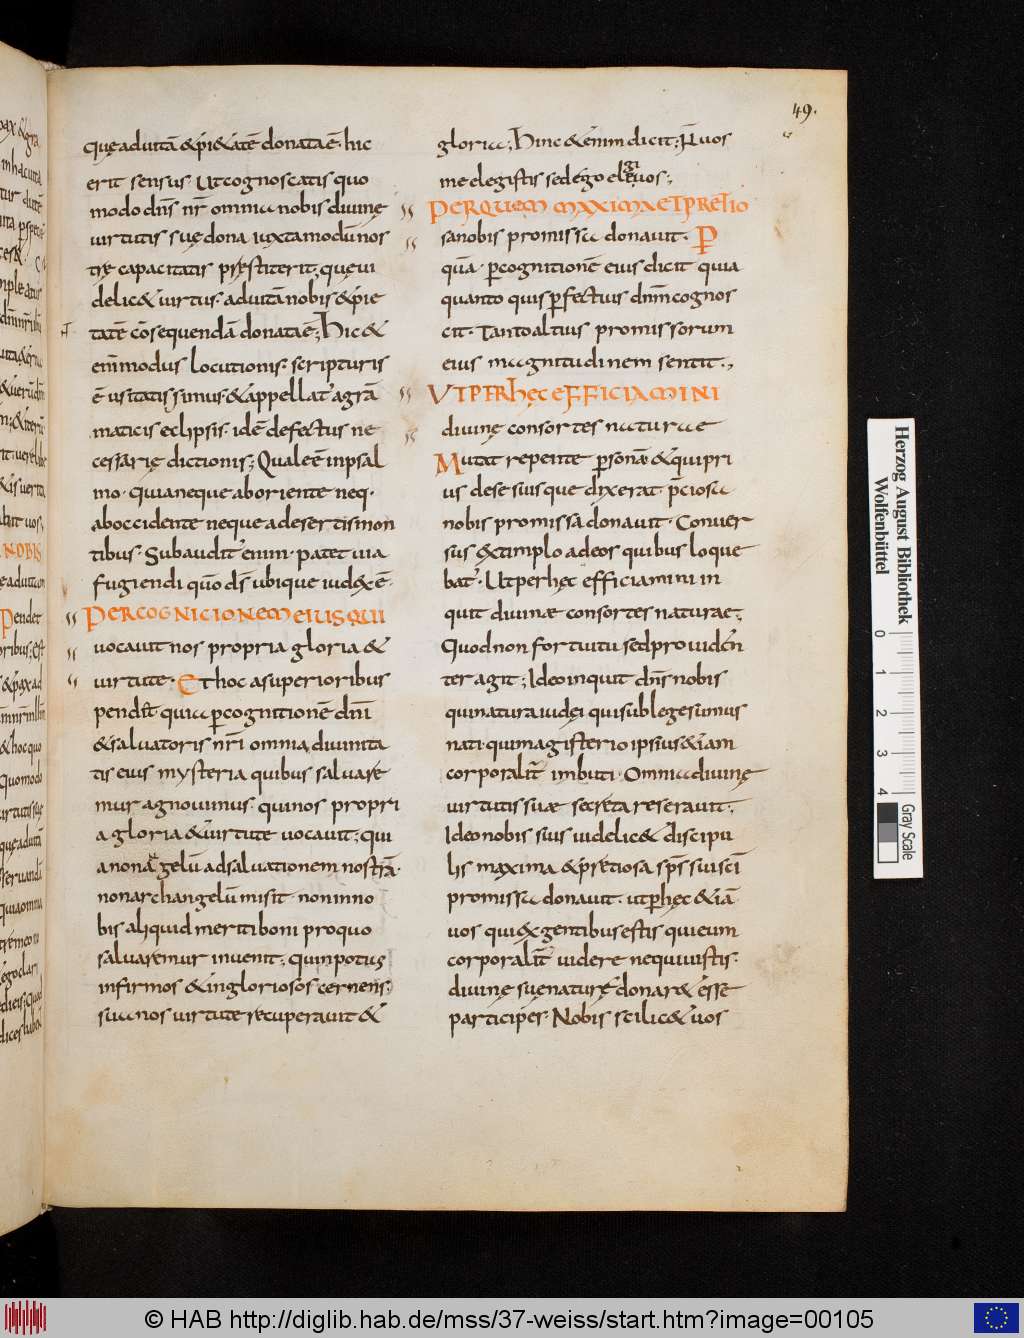 49.
quęaduitā &pi&atē donataē· hic
erit sensus· Utcognoscatis quo
modo dn̄s nr̄ omnia nobis diuinę
uirtutis suę dona iuxtamodū nos
trę capacitatis pręstiterit; quęui
delic& uirtus· aduitā nobis &pie
tatē cōsequendā donataē; Hic &
enī modus locutionis· scripturis
ē usitatissimus· & appellat' agrā
maticis eclipsis· idē defectus ne
cessarię dictionis; Qualeē inpsal
mo· quianeque aboriente neq·
aboccidente neque adesertismon
tibus· Subaudit' enim· patet uia
fugiendi quō ds̄ ubique iudex ē·
PERCOGNICIONEM EIUS QUI
uocauit nos propria gloria &
uirtute· Ethoc asuperioribus
pendit· quia p̱cognitionē dn̄i
&saluatoris nr̄i omnia diuinita
tis eius mysteria quibus saluare
mur agnouimus· quinos propri
a gloria &uirtute uocauit; qui
anonā gelū adsaluationem nostrā·
nonarchangelū misit· noninno
bis aliquid meritiboni proquo
saluaremur inuenit; quinpotius
infirmos &ingloriosos cernens·
sua nos uirtute recuperauit &
gloria; Hinc &enim dicit; N̄ uos
me elegistis sedego elegi uos;
PERQUEM MAXIMA ET PRETIO
sanobis promissa donauit· P̱
quā· p̱cognitionē eius dicit quia
quanto quis p̱fectius dnm̄ cognos
cit· Tantoaltius promissorum
eius magnitudinem sentit·,
UT PER HĘC EFFICIAMINI
diuinę consortes naturae
Mutat repente p̱sonā &quipri
us desesuisque dixerat p̄ciosa
nobis promissa donauit· Conuer
sus extimplo adeos quibus loque
bat'· Utperhęc efficiamini in
quit diuinae consortes naturae;
Quodnon fortuitu sedprouidēn
ter agit; Ideoinquit dn̄s nobis
quinatura iudęi quisublegesumus
nati· quimagisterio ipsius &iam
corporalit̄ imbuti· Omnia diuinę
uirtutis suae secreta reserauit;
Ideonobis suis uidelic& discipu
lis maxima &pretiosa sp̄s suiscī
promissa donauit· utp̱hęc &iā
uos quiexgentibus estis quieum
corporalit̄ uidere nequiuistis·
diuinę suęnaturę donar& esse
participes· Nobis scilic& uos
Herzog August Bibliothek
Wolfenbüttel
0 1 2 3 4
Gray Scale
© HAB http://diglib.hab.de/mss/37-weiss/start.htm?image=00105